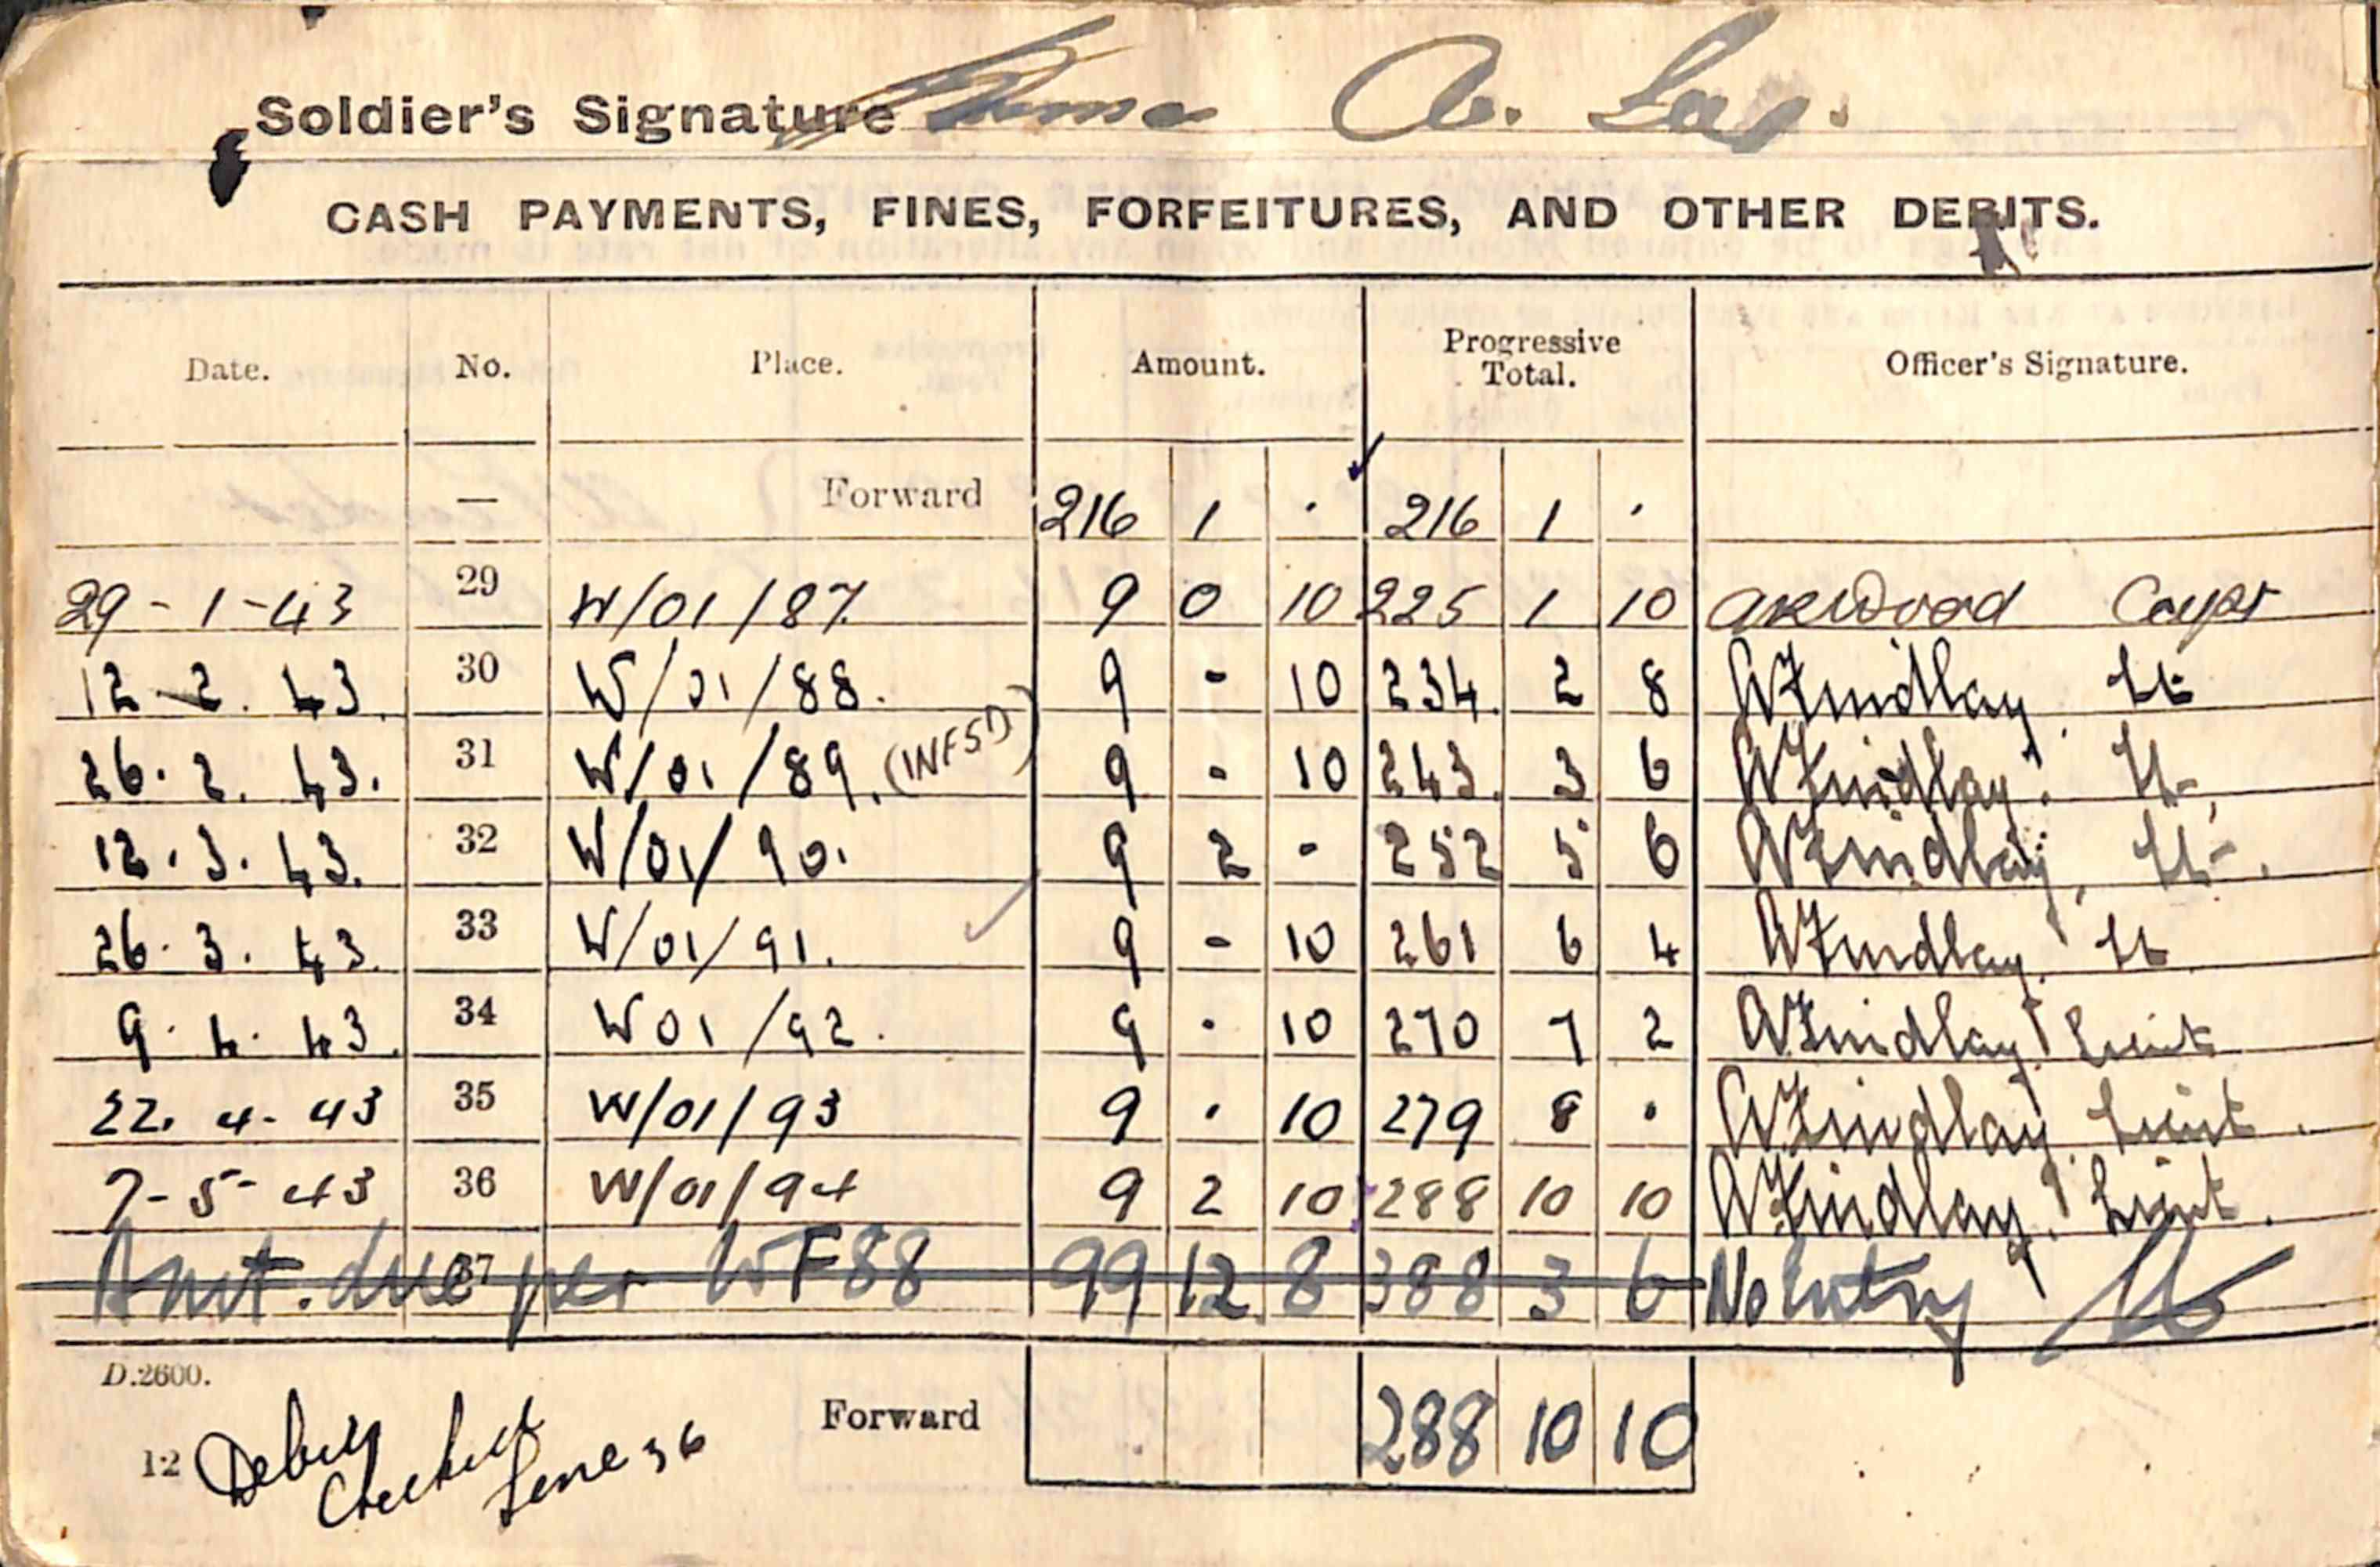 Soldier's Signature A.
CASH PAYMENTS, FINES, FORFEITURES, AND OTHER DEBITS.
Date. No. Place. Amount. Progressive Total. Officer's Signature.
— Forward 216 1 · 216 1 ·
29-1-43 29 W/01/87. 9 0 10 225 1 10 AKWood Capt
12-2.43. 30 W/01/88. 9 - 10 234. 2 8 AFindlay. Lt
26.2.43. 31 W/01/89. (INFSD) 9 - 10 243. 3 6 AFindlay. Lt.
12.3.43. 32 W/01/90. 9 2 - 252 5 6 AFindlay, Lt.
26.3.43. 33 W/01/91. 9 - 10 261 6 4 AFindlay. Lt
9.4.43. 34 W01/92. 9 · 10 270 7 2 AFindlay. Lieut
22.4.43 35 W/01/93 9 · 10 279 8 · AFindlay. Lieut.
7-5-43 36 W/01/94 9 2 10 288 10 10 AFindlay. Lieut.
Amt. due 37 per WF88 99 12 8 388 3 6 No Entry
D.2600.
Forward 288 10 10
12 Debits
Checked
Line 36